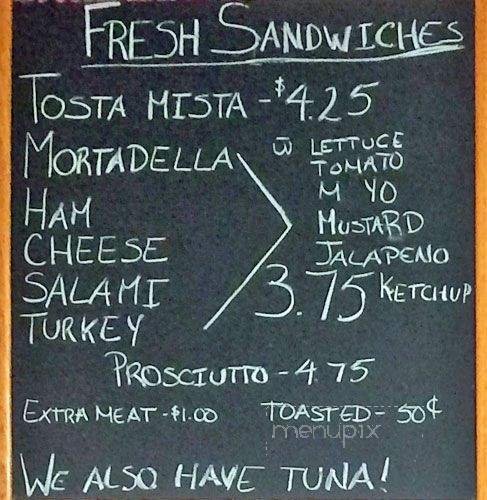 FRESH SANDWICHES
TOSTA MISTA - $4.25
MORTADELLA
HAM
CHEESE
SALAMI
TURKEY
w̄ LETTUCE
TOMATO
M YO
MUSTARD
JALAPENO
KETCHUP
3.75
PROSCIUTTO - 4.75
EXTRA MEAT - $1.00 TOASTED - 50¢
menupix
WE ALSO HAVE TUNA!